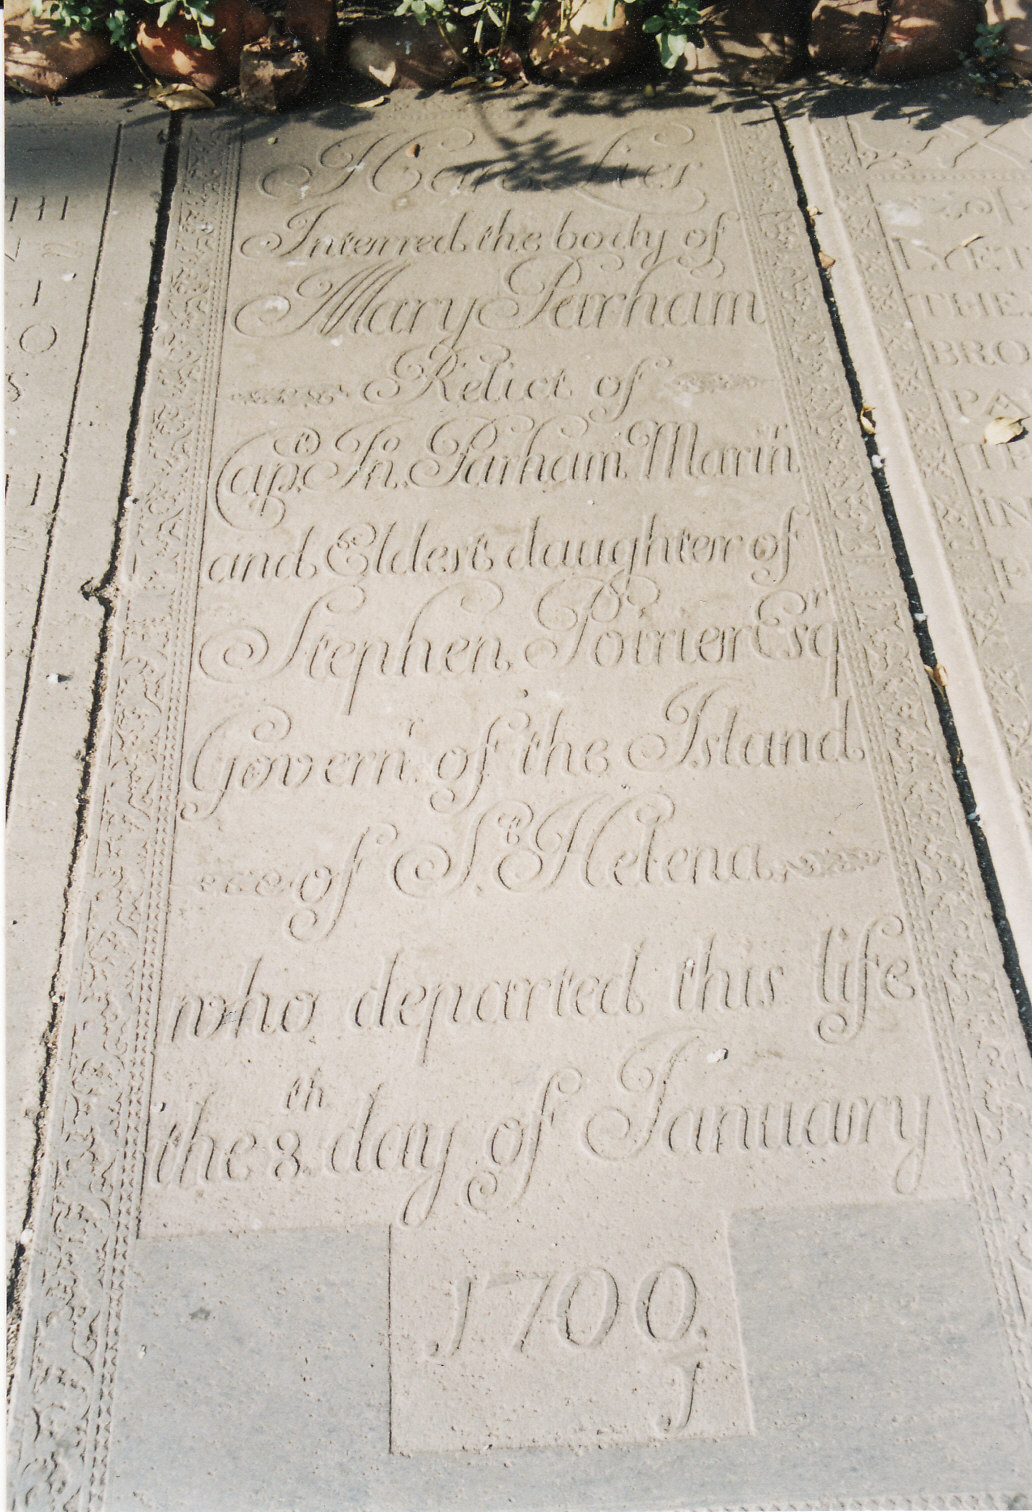 Here lies
Interred the body of
Mary Parham
Relict of
Capt. Jn. Parham Marinr
and Eldest daughter of
Stephen Poirier Esqr
Governr. of the Island
of St. Helena
who departed this life
the 8th. day of January
1700
1
LYET
THE
BRO
PA
IN